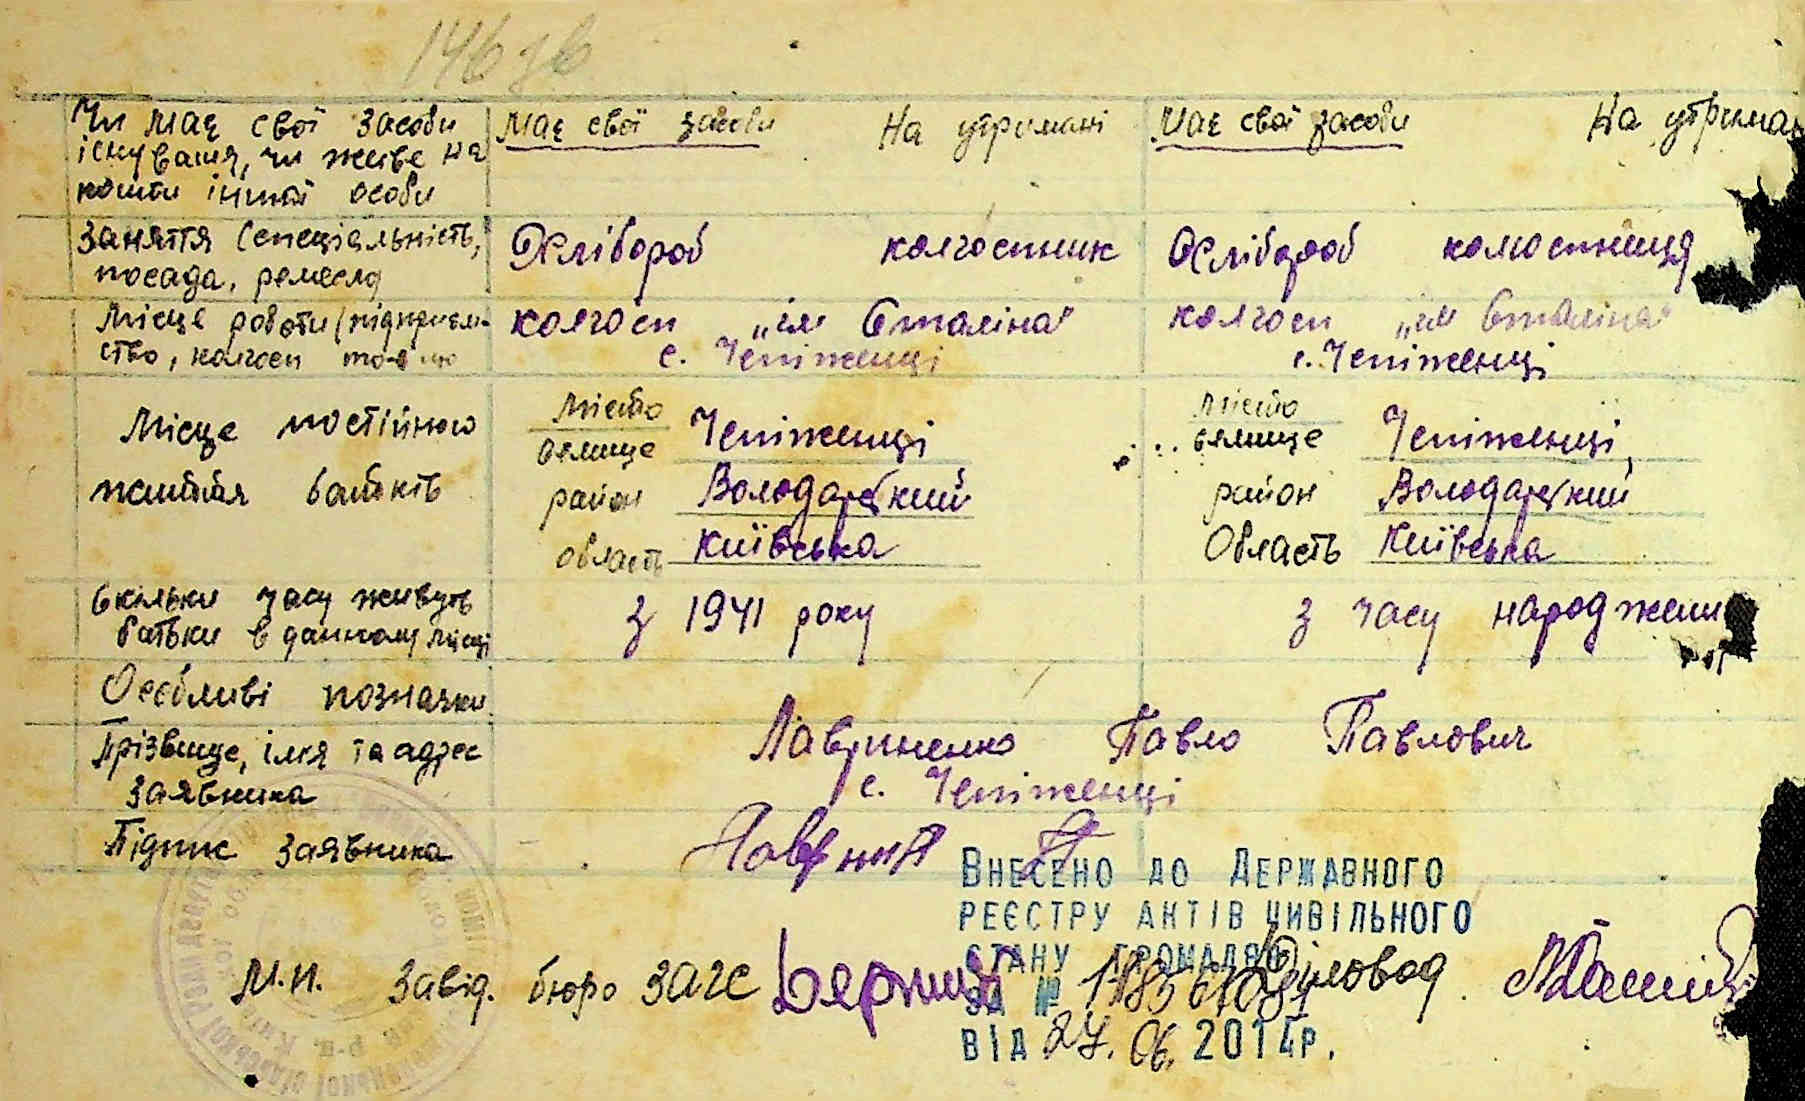 146 зв
Чи має свої засоби
існування, чи живе на
кошти іншої особи
Має свої засоби На утримані
Має свої засоби На утриман
Заняття (спеціальність,
посада, ремесло
Хлібороб колгоспник
Хлібороб колгоспниця
Місце роботи (підприєм-
ство, колгосп
колгосп „ім Сталіна"
с. Чепіженці
колгосп „ім Сталіна"
с. Чепіженці
Місце постійного
життя батьків
місто
селище Чепіженці
район Володарський
область Київська
місто
селище Чепіженці,
район Володарський
Область Київська
Скільки часу живуть
батьки в данному місці
з 1941 року
з часу народжен
Особливі позначки
Прізвище, імя та адрес
Заявника
Лавриненко Павло Павлович
с. Чепіженці
Підпис Заявника
М.П. Завід. бюро ЗАГС
Діловод
Внесено до Державного
реєстру актів цивільного
стану громадян
за №
від 27. 06. 2014р.